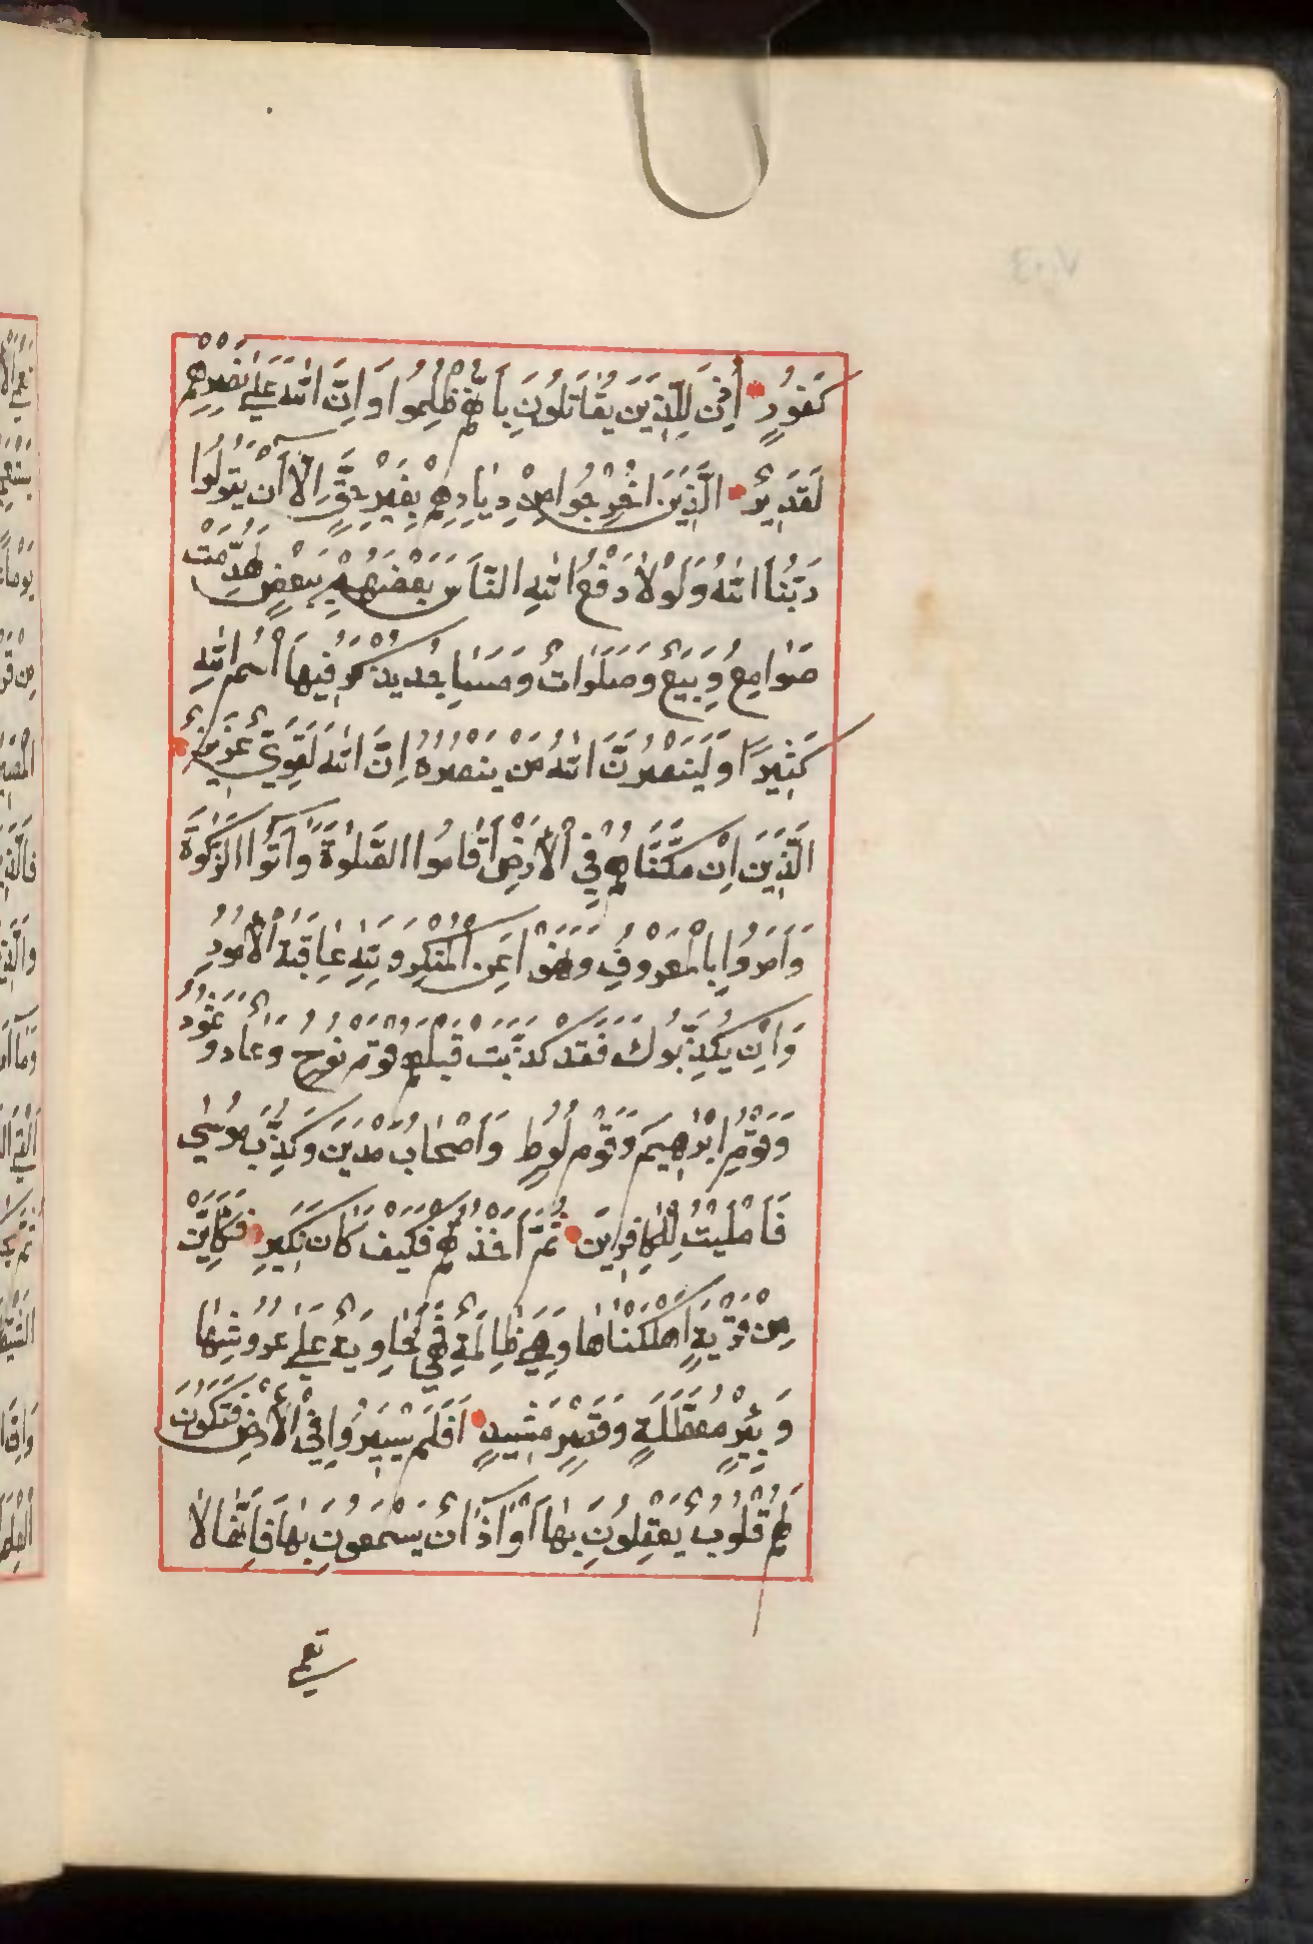 كَفُورٍ اُذِنَ لِلَّذِينَ يُقَاتَلُونَ بِاَنَّهُمْ ظُلِمُوا وَاِنَّ اللّٰهَ عَلٰى نَصْرِهِمْ
لَقَدِيرٌ الَّذِينَ اُخْرِجُوا مِنْ دِيَارِهِمْ بِغَيْرِ حَقٍّ اِلَّآ اَنْ يَقُولُوا
رَبُّنَا اللّٰهُ وَلَوْلَا دَفْعُ اللّٰهِ النَّاسَ بَعْضَهُمْ بِبَعْضٍ لَهُدِّمَتْ
صَوَامِعُ وَبِيَعٌ وَصَلَوَاتٌ وَمَسَاجِدُ يُذْكَرُ فِيهَا اسْمُ اللّٰهِ
كَثِيرًا وَلَيَنْصُرَنَّ اللّٰهُ مَنْ يَنْصُرُهُ اِنَّ اللّٰهَ لَقَوِيٌّ عَزِيزٌ
الَّذِينَ اِنْ مَكَّنَّاهُمْ فِي الْاَرْضِ اَقَامُوا الصَّلٰوةَ وَآتَوُا الزَّكٰوةَ
وَاَمَرُوا بِالْمَعْرُوفِ وَنَهَوْا عَنِ الْمُنْكَرِ وَلِلّٰهِ عَاقِبَةُ الْاُمُورِ
وَاِنْ يُكَذِّبُوكَ فَقَدْ كَذَّبَتْ قَبْلَهُمْ قَوْمُ نُوحٍ وَعَادٌ وَثَمُودُ
وَقَوْمُ اِبْرٰهِيمَ وَقَوْمُ لُوطٍ وَاَصْحَابُ مَدْيَنَ وَكُذِّبَ مُوسٰى
فَاَمْلَيْتُ لِلْكَافِرِينَ ثُمَّ اَخَذْتُهُمْ فَكَيْفَ كَانَ نَكِيرِ فَكَاَيِّنْ
مِنْ قَرْيَةٍ اَهْلَكْنَاهَا وَهِيَ ظَالِمَةٌ فَهِيَ خَاوِيَةٌ عَلٰى عُرُوشِهَا
وَبِئْرٍ مُعَطَّلَةٍ وَقَصْرٍ مَشِيدٍ اَفَلَمْ يَسِيرُوا فِي الْاَرْضِ فَتَكُونَ
لَهُمْ قُلُوبٌ يَعْقِلُونَ بِهَا اَوْ آذَانٌ يَسْمَعُونَ بِهَا فَاِنَّهَا لَا
تعمى